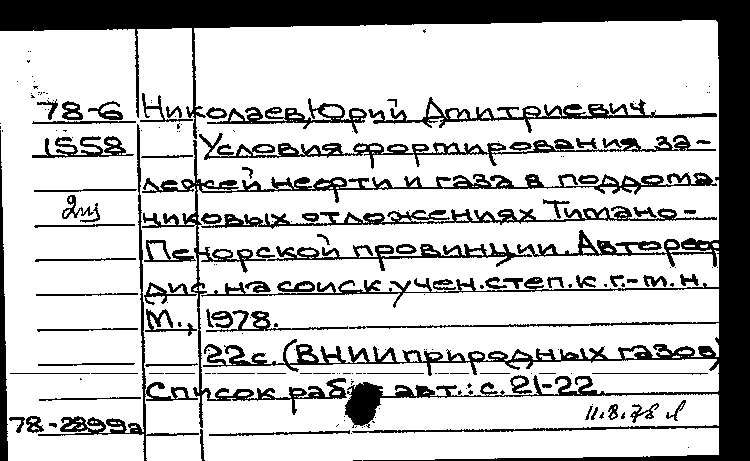 78-6 Николаев, Юрий Дмитриевич.
1558 Условия формирования за-
лежей нефти и газа в поддома-
2щ
никовых отложениях Тимано-
Печорской провинции. Автореф
дис. на соиск. учен. степ. к. г.-м. н.
М., 1978.
22с. (ВНИИприродных газов)
Список работ авт.: с. 21-22.
11.8.78
78-2899а